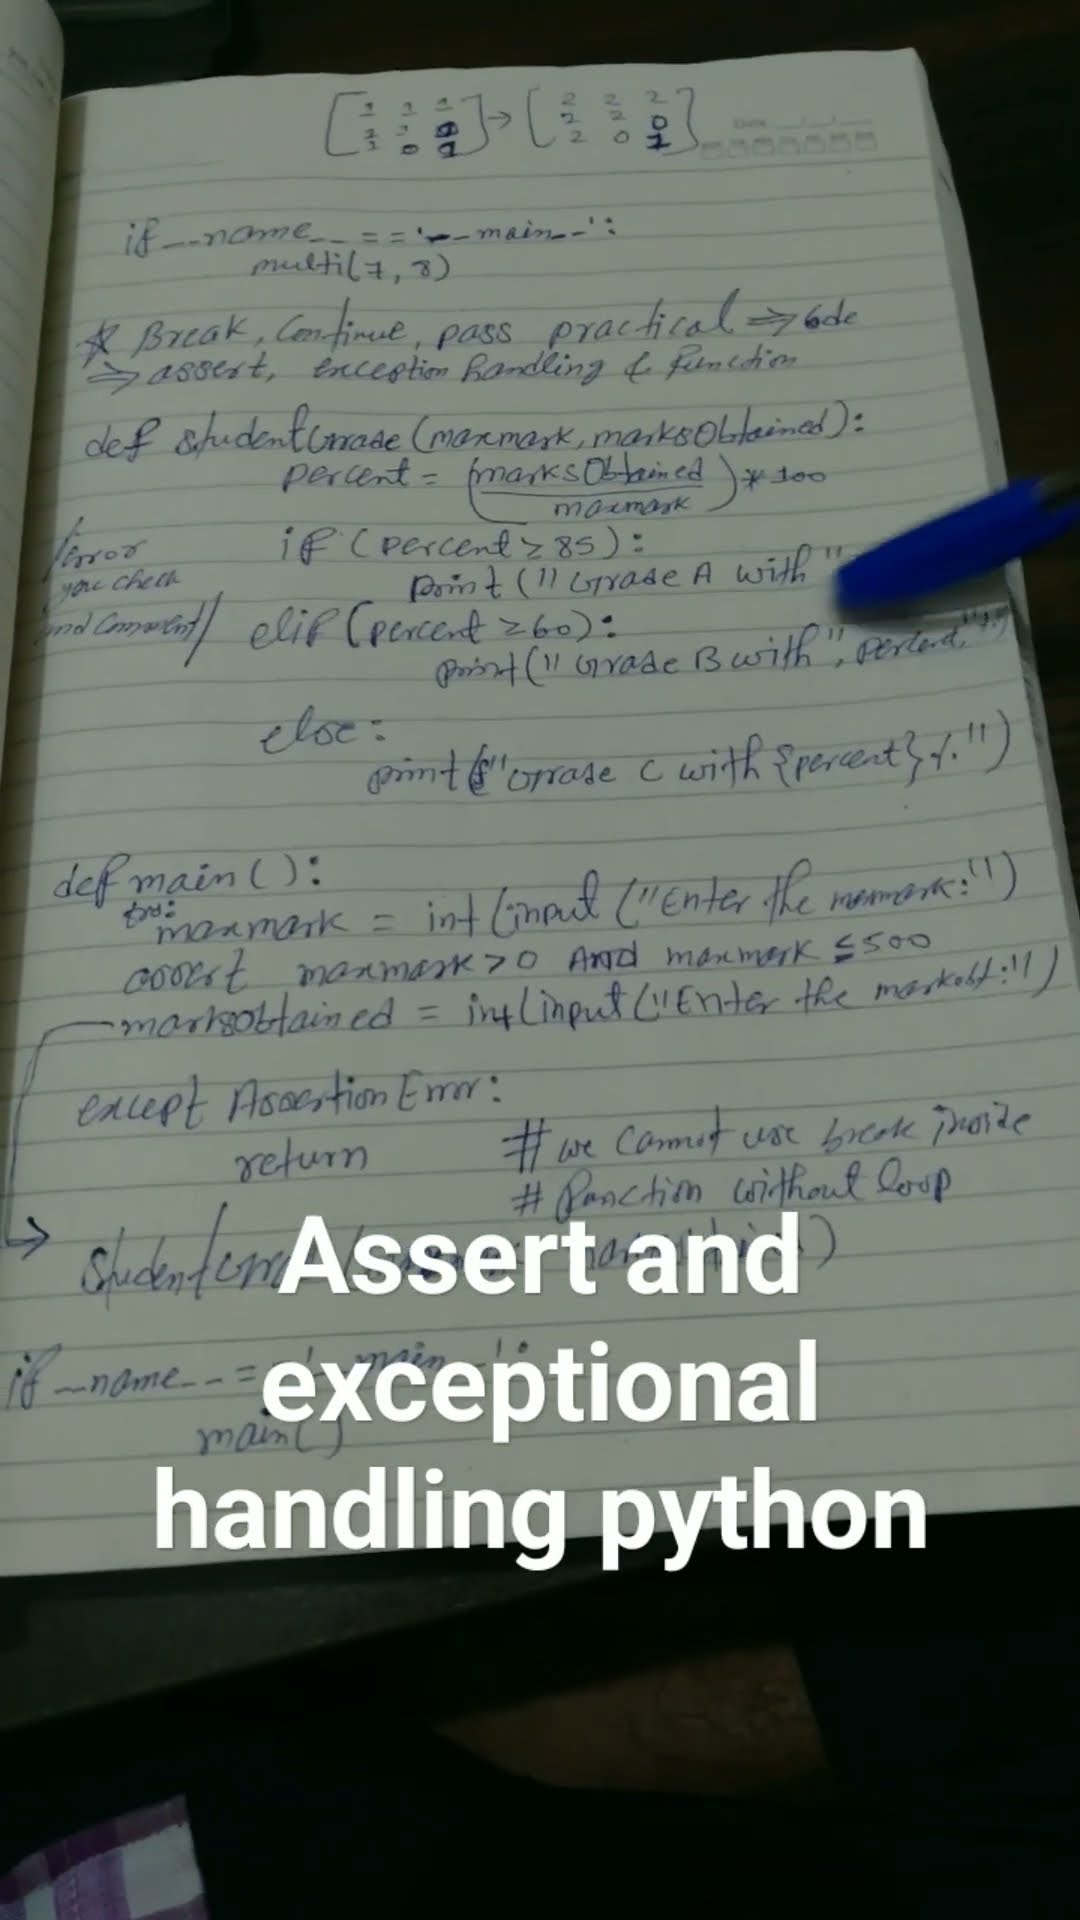 [1 1 1 → [2 2 2
1 1 0 2 2 0
1 0 1] 2 0 1]
Date
if __name__ == '__main__':
multi(7, 8)
☆ Break, Continue, pass practical ⇒ code
⇒ assert, exception handling & function
def studentGrade(maxmark, marksObtained):
percent = (marksObtained / maxmark) * 100
/Error
if (percent ≥ 85):
you check
print ("Grade A with"
and Comment/
elif (percent ≥ 60):
print ("Grade B with", percent, "%")
else:
print (f"Grade C with {percent} %.")
def main():
try:
maxmark = int(input("Enter the maxmark:")
assert maxmark > 0 and maxmark ≤ 500
marksObtained = int(input("Enter the markobt:")
except AssertionError:
return # we cannot use break inside
# function without loop
→ student
if __name__ = main ':
main()
Assert and
exceptional
handling python